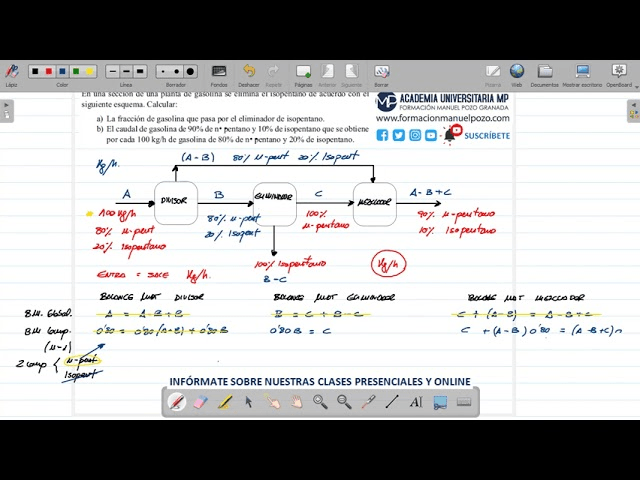 Lápiz
Color
Línea
Borrador
Fondos
Deshacer
Rehacer
Páginas
Anterior
Siguiente
Borrar
Tableros
Web
Documentos
Mostrar escritorio
OpenBoard
En una sección de una planta de gasolina se elimina el isopentano de acuerdo con el
siguiente esquema. Calcular:
a) La fracción de gasolina que pasa por el eliminador de isopentano.
b) El caudal de gasolina de 90% de n• pentano y 10% de isopentano que se obtiene
por cada 100 kg/h de gasolina de 80% de n• pentano y 20% de isopentano.
MP ACADEMIA UNIVERSITARIA MP
FORMACIÓN MANUEL POZO GRANADA
www.formacionmanuelpozo.com
SUSCRÍBETE
Kg/h.
(A-B) 80% n-pent 20% Isopent
A
DIVISOR
B
ELIMINADOR
C
MEZCLADOR
A-B+C
100 Kg/h
80% n-pent
20% Isopentano
80% n-pent
20% Isopent
100%
n-pentano
90% n-pentano
10% Isopentano
100% Isopentano
B-C
Kg/h
ENTRA = SALE Kg/h.
BALANCE MAT DIVISOR
BALANCE MAT ELIMINADOR
BALANCE MAT MEZCLADOR
B.M. Global.
A = A-B+B
B = C + B-C
C + (A-B) = A-B+C
B.M Comp.
0'80 = 0'80(A-B) + 0'80B
0'80B = C
C + (A-B) 0'80 = (A-B+C)
(n-1)
2 comp
n-pent
Isopent
INFÓRMATE SOBRE NUESTRAS CLASES PRESENCIALES Y ONLINE